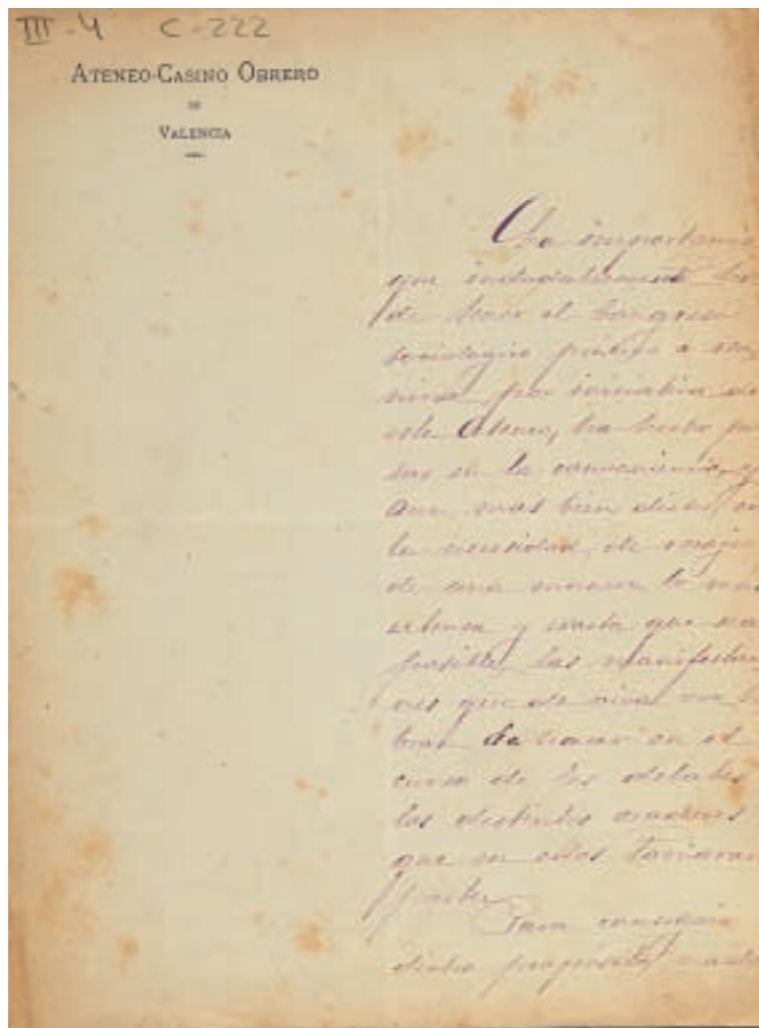 III-4 C-222
ATENEO-CASINO OBRERO
DE
VALENCIA
La importancia
que indudablemente ha
de tener el Congreso
sociologico proximo a
por iniciativa de
este Ateneo, ha hecho
en la conveniencia, y
aun mas bien dicho, en
la necesidad, de
de una manera lo mas
extensa y exacta que sea
posible, las manifestacio
nes que de viva voz
bran de hacer en el
curso de los debates
los distintos oradores
que en ellos tomaran
parte.
Para conseguir
dicho proposito,